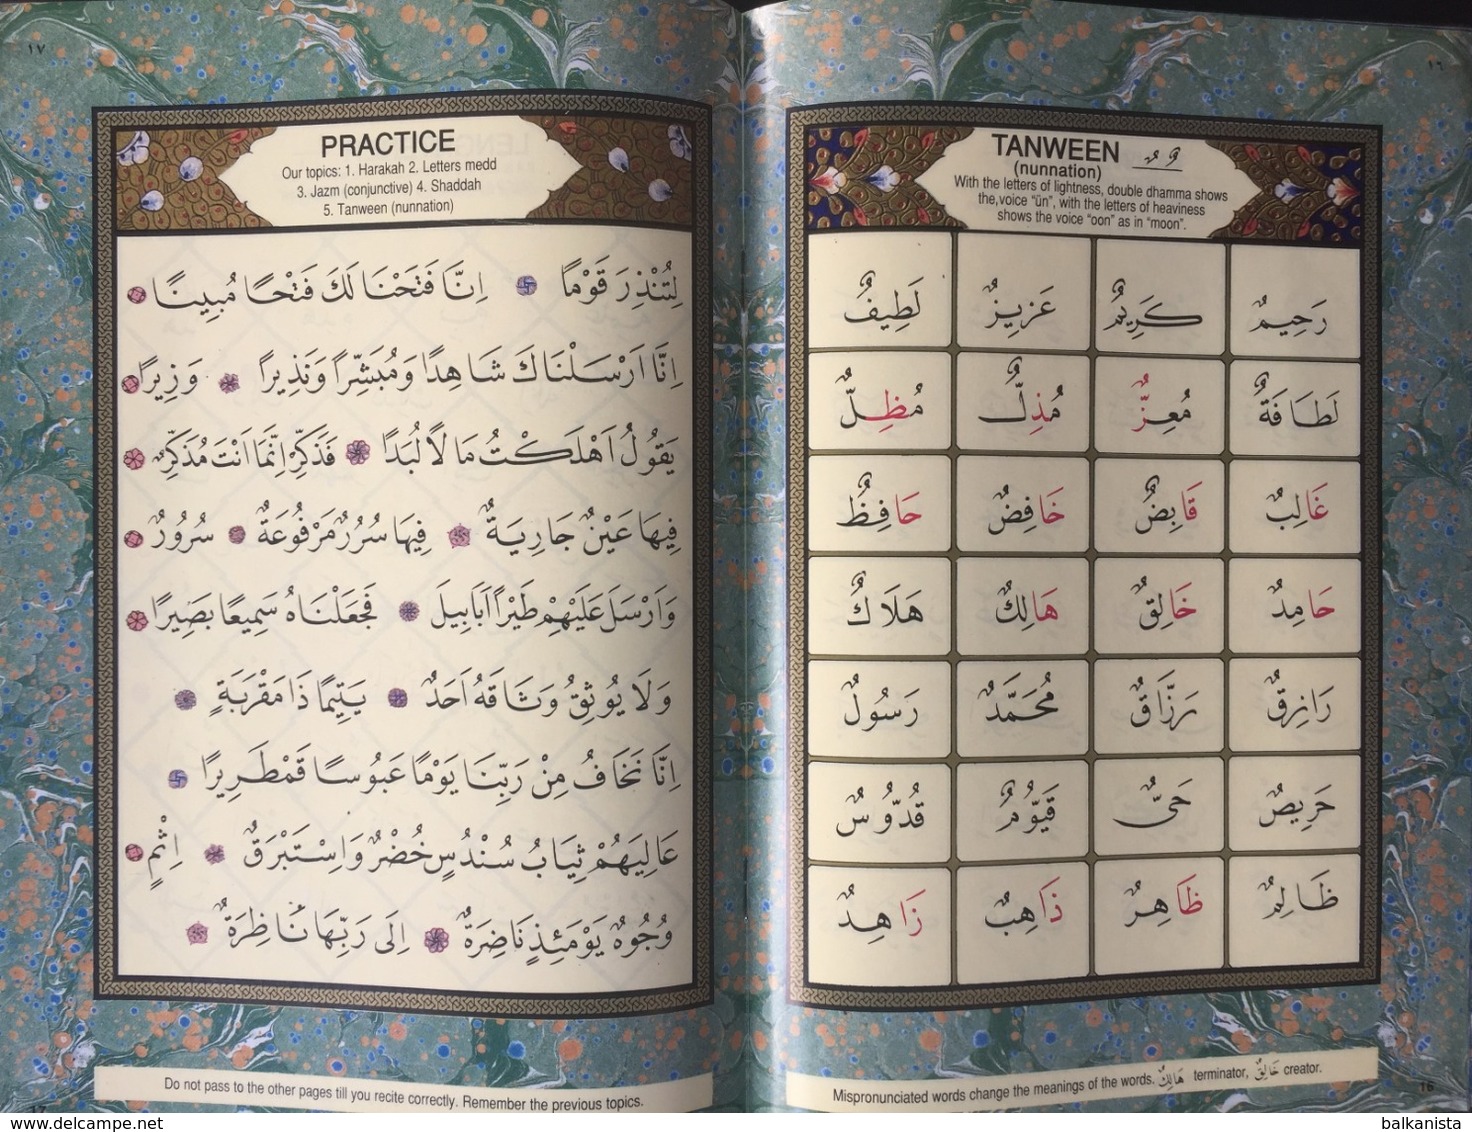 ١٦
TANWEEN
(nunnation)
With the letters of lightness, double dhamma shows
the,voice “ün”, with the letters of heaviness
shows the voice “oon” as in “moon”.
رَحِيمٌ كَرِيمٌ عَزِيزٌ لَطِيفٌ
لَطَافَةٌ مُعِزٌّ مُذِلٌّ مُظِلٌّ
غَالِبٌ قَابِضٌ خَافِضٌ حَافِظٌ
حَامِدٌ خَالِقٌ هَالِكٌ هَلَاكٌ
رَازِقٌ رَزَّاقٌ مُحَمَّدٌ رَسُولٌ
حَرِيصٌ حَىٌّ قَيّوُمٌ قُدّوُسٌ
ظَالِمٌ ظَاهِرٌ ذَاهِبٌ زَاهِدٌ
Mispronunciated words change the meanings of the words. هَالِكٌ terminator, خَالِقٌ creator.
16
١٧
PRACTICE
Our topics: 1. Harakah 2. Letters medd
3. Jazm (conjunctive) 4. Shaddah
5. Tanween (nunnation)
لِتُنْذِرَ قَوْمًا اِنَّا فَتَحْنَا لَكَ فَتْحًا مُبِينًا
اِنَّا اَرْسَلْنَاكَ شَاهِدًا وَمُبَشِّرًا وَنَذِيرًا وَزِيرًا
يَقُولُ اَهْلَكْتُ مَالًا لُبَدًا فَذَكِّرْ اِنَّمَا اَنْتَ مُذَكِّرٌ
فِيهَا عَيْنٌ جَارِيَةٌ فِيهَا سُرُرٌ مَرْفُوعَةٌ سُرُورٌ
وَاَرْسَلَ عَلَيْهِمْ طَيْرًا اَبَابِيلَ فَجَعَلْنَاهُ سَمِيعًا بَصِيرًا
وَلَا يُوثِقُ وَثَاقَهُ اَحَدٌ يَتِيمًا ذَا مَقْرَبَةٍ
اِنَّا نَخَافُ مِنْ رَبِّنَا يَوْمًا عَبُوسًا قَمْطَرِيرًا
عَالِيَهُمْ ثِيَابُ سُنْدُسٍ خُضْرٌ وَاِسْتَبْرَقٌ اِثْمٍ
وُجُوهٌ يَوْمَئِذٍ نَاضِرَةٌ اِلَى رَبِّهَا نَاظِرَةٌ
Do not pass to the other pages till you recite correctly. Remember the previous topics.
17
www.delcampe.net
balkanista